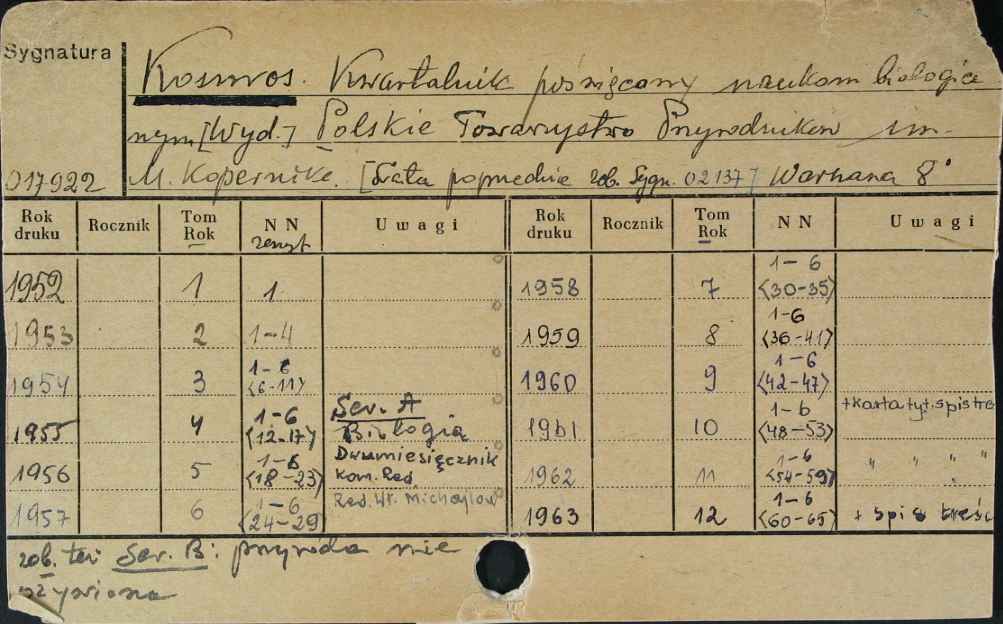 Sygnatura
Kosmos. Kwartalnik poświęcony naukom biologicz
nym [Wyd.] Polskie Towarzystwo Przyrodników im.
017922 M. Kopernika. [Lata poprzednie zob. Sygn. 02137] Warszawa 8°
Rok druku Rocznik Tom Rok NN zeszyt Uwagi Rok druku Rocznik Tom Rok NN Uwagi
1952 1 1 1958 7 1-6 <30-35>
1953 2 1-4 1959 8 1-6 <36-41>
1954 3 1-6 <6-11> 1960 9 1-6 <42-47>
1955 4 1-6 <12-17> Ser. A Biologia 1961 10 1-6 <48-53> + karta tyt. spis treś
1956 5 1-6 <18-23> Dwumiesięcznik Kom. Red. 1962 11 1-6 <54-59> " " " "
1957 6 1-6 <24-29> Red. Wł. Michajłow 1963 12 1-6 <60-65> + spis treśc
zob. też Ser. B: przyroda nie
ożywiona